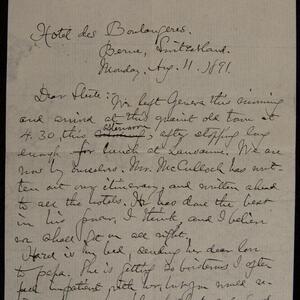 Hotel des Boulangeres.
Berne, Switzerland.
Monday, Aug. 11. 1891.
Dear Shute: We left Geneva this morning
and arrived at this quaint old town at
4.30 this afternoon, after stopping long
enough for lunch at Lausanne. We are
now by ourselves. Mr. McCulloch has writ-
ten out our itinerary, and written ahead
to all the hotels. He has done the best
in his power, I think, and I believe
we shall get on all right.
is in bed, sending her dear love
to papa. She is getting so boisterous I often
feel impatient with her,